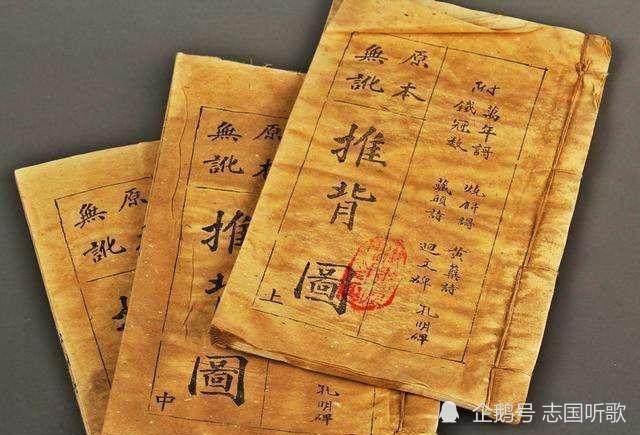 附
萬年謌
燒餅謌
黃蘗詩
孔明碑
鐵冠数
藏頭詩
迴文碑
原本
無訛
推背圖
上
原本
無訛
推背圖
中
孔明碑
原本
無訛
企鹅号 志国听歌